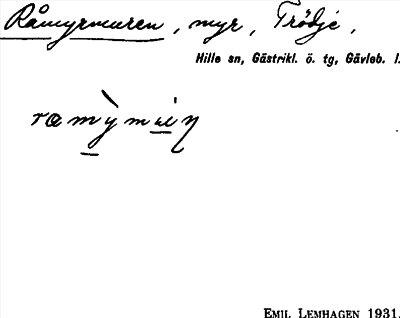 Råmyrmuren, myr, Trödje,
Hille sn, Gästrikl. ö. tg, Gävleb. l.
EMIL LEMHAGEN 1931.